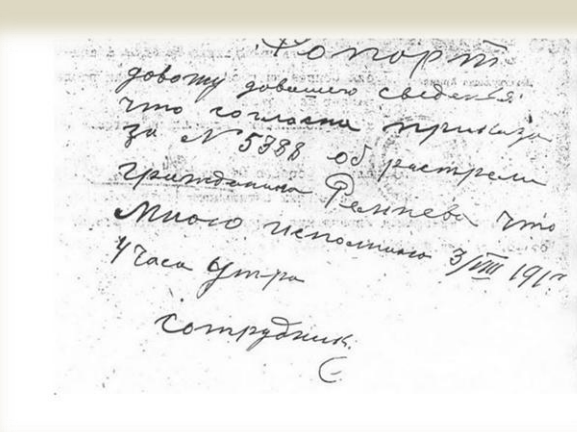 Рапорт
довожу довашего сведенья
что согласна приказа
за № 5388 об растреле
гражданина что
Мною исполнино 3/VIII 191
4 часа Утра
сотрудник.